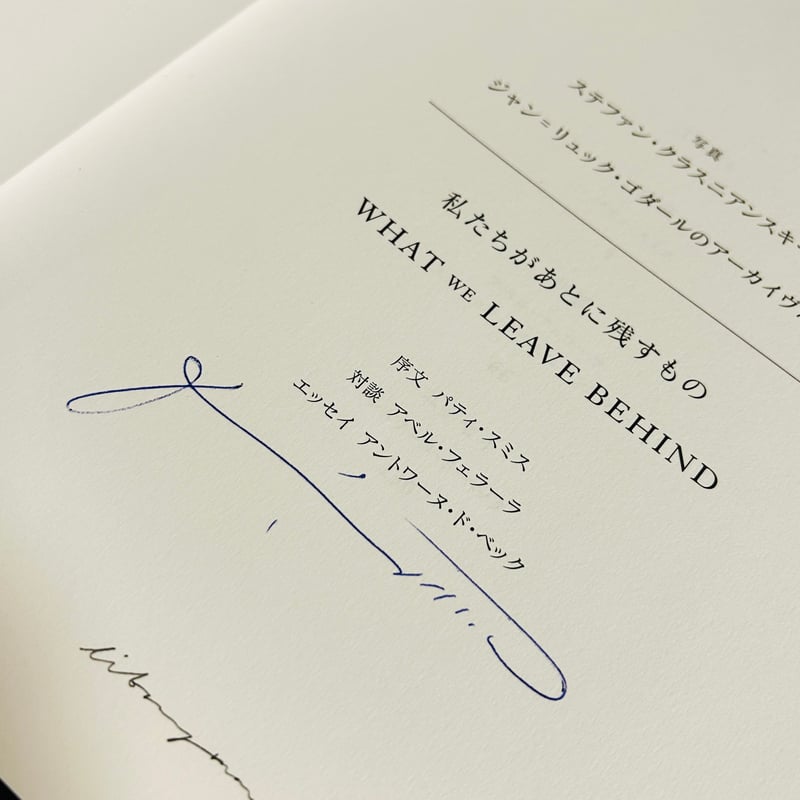 写真
ステファン・クラスニアンスキー
ジャン=リュック・ゴダールのアーカイヴ
私たちがあとに残すもの
WHAT WE LEAVE BEHIND
序文 パティ・スミス
対談 アベル・フェラーラ
エッセイ アントワーヌ・ド・ベック